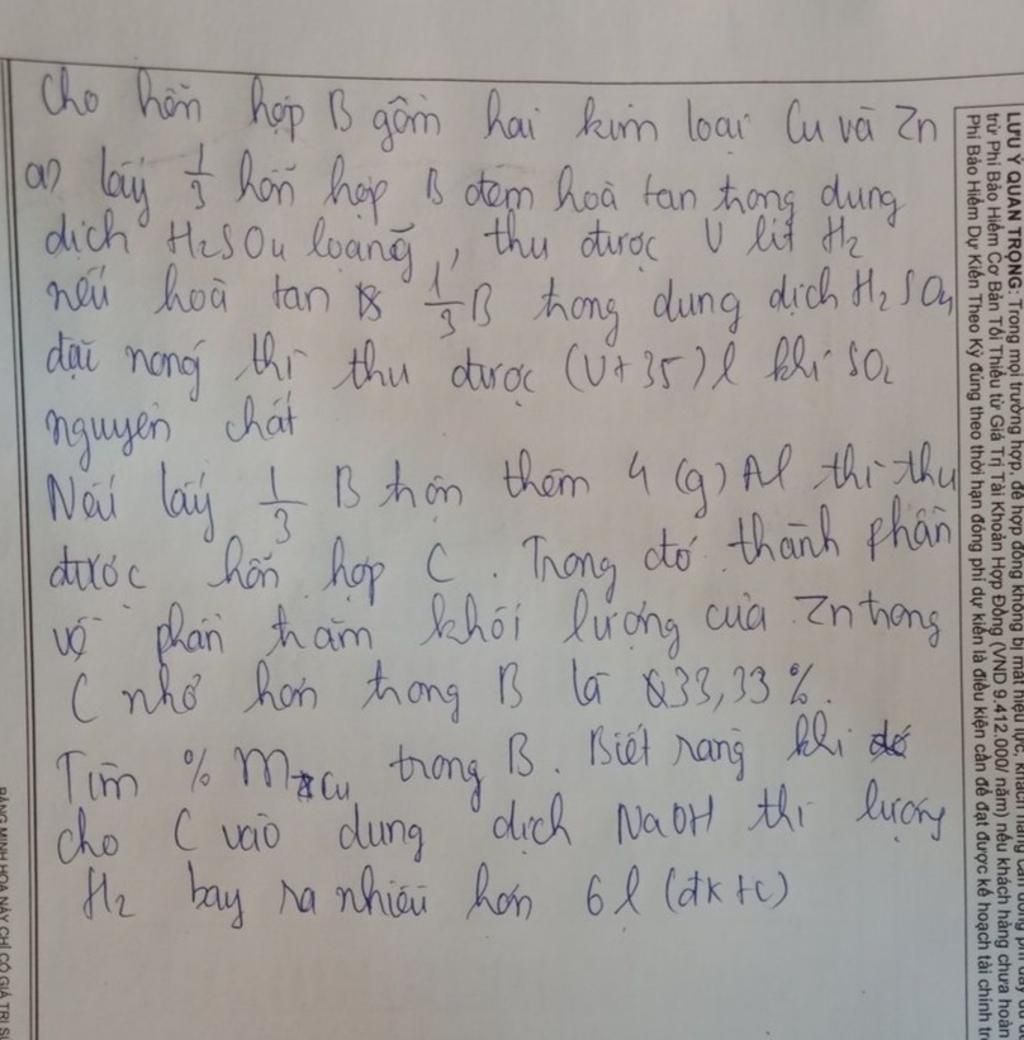 Cho hỗn hợp B gồm hai kim loại Cu và Zn
a) lấy 1/3 hỗn hợp B đem hoà tan trong dung
dịch H2SO4 loãng, thu được V lít H2
nếu hoà tan 1/3 B trong dung dịch H2SO4
đặc nóng thì thu được (V+35)l khí SO2
nguyên chất
Nếu lấy 1/3 B trộn thêm 4 (g) Al thì thu
được hỗn hợp C. Trong đó thành phần
về phần trăm khối lượng của Zn trong
C nhỏ hơn trong B là 33,33%.
Tìm % mCu trong B. Biết rằng khi
cho C vào dung dịch NaOH thì lượng
H2 bay ra nhiều hơn 6l (đktc)
LƯU Ý QUAN TRỌNG: Trong mọi trường hợp, để hợp đồng không bị mất hiệu lực, khách hàng cần đóng phí đầy đủ
trừ Phí Bảo Hiểm Cơ Bản Tối Thiểu từ Giá Trị Tài Khoản Hợp Đồng (VND 9.412.000/ năm) nếu khách hàng chưa hoàn
Phí Bảo Hiểm Dự Kiến Theo Kỳ đúng theo thời hạn đóng phí dự kiến là điều kiện cần để đạt được kế hoạch tài chính
BẢNG MINH HỌA NÀY CHỈ CÓ GIÁ TRỊ